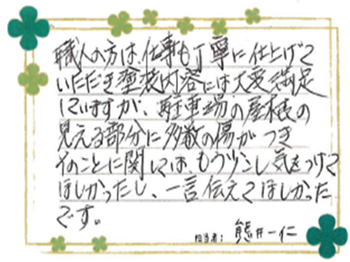 職人の方は、仕事も丁寧に仕上げて
いただき塗装内容には大変満足
していますが、駐車場の屋根の
見える部分に多数の傷がつき
そのことに関しては、もう少し気をつけて
ほしかったし、一言伝えてほしかった
です。
担当者: 熊井一仁